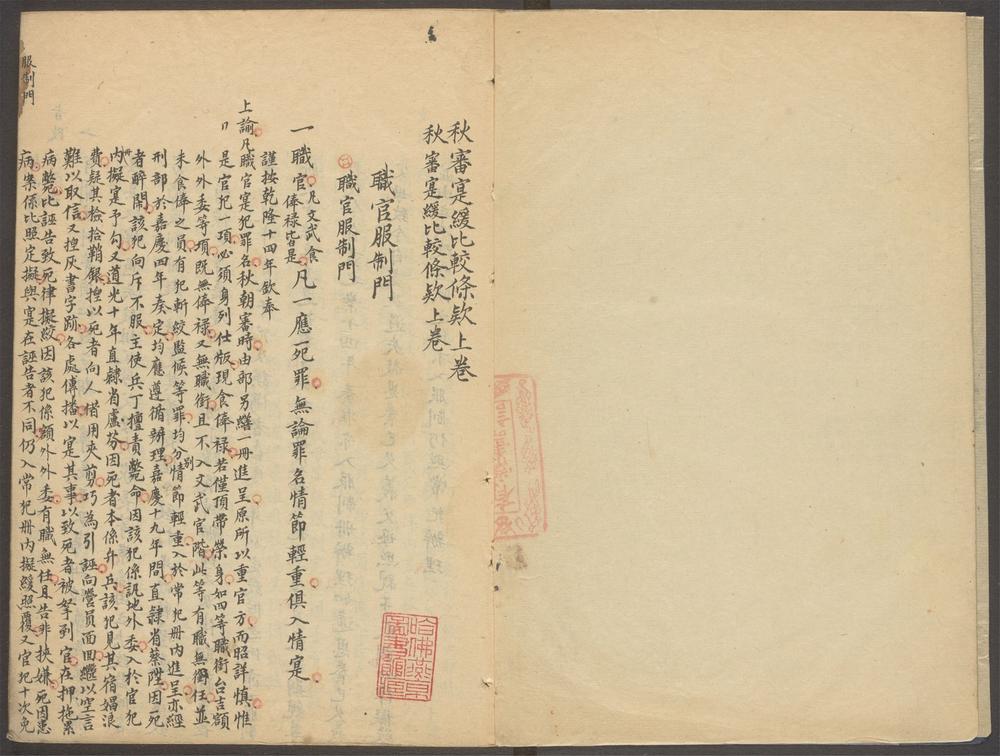 秋審寔緩比較條欵上卷
秋審寔緩比較條欵上卷
職官服制門
職官服制門
一職官凡文武食俸禄皆是凡一應死罪無論罪名情節輕重俱入情寔
謹按乾隆十四年欽奉
上諭凡職官寔犯罪名秋朝審時由部另繕一冊進呈原所以重官方而昭詳慎惟
是官犯一項必須身列仕版現食俸禄若僅頂帶榮身如四等職銜台吉額
外外委等項既無俸禄又無職銜且不入文武官階此等有職無任並
未食俸之員有犯斬絞監候等罪均分別情節輕重入於常犯冊内進呈亦經
刑部於嘉慶四年奏定均應遵循辦理嘉慶十九年間直隷省蔡陞因一死
者醉鬧該犯向斥不服主使兵丁擅責斃命因該犯係訊地外委入於官犯
冊内擬寔予勾又道光十年直隷省盧芬因死者本係弁兵該犯見其宿娼浪
費疑其檢拾鞘銀捏以死者向人借用夾剪巧為引誣向營員面回繼以空言
難以取信又捏灰書字跡各處傳播以寔其事以致死者被拏到官在押拖累
病斃比誣告致死律擬絞因該犯係額外外委有職無任且告非挾嫌死因患
病案係比照定擬與寔在誣告者不同仍入常犯冊内擬緩照覆又官犯十次免
服制門
哈佛燕京圖書館